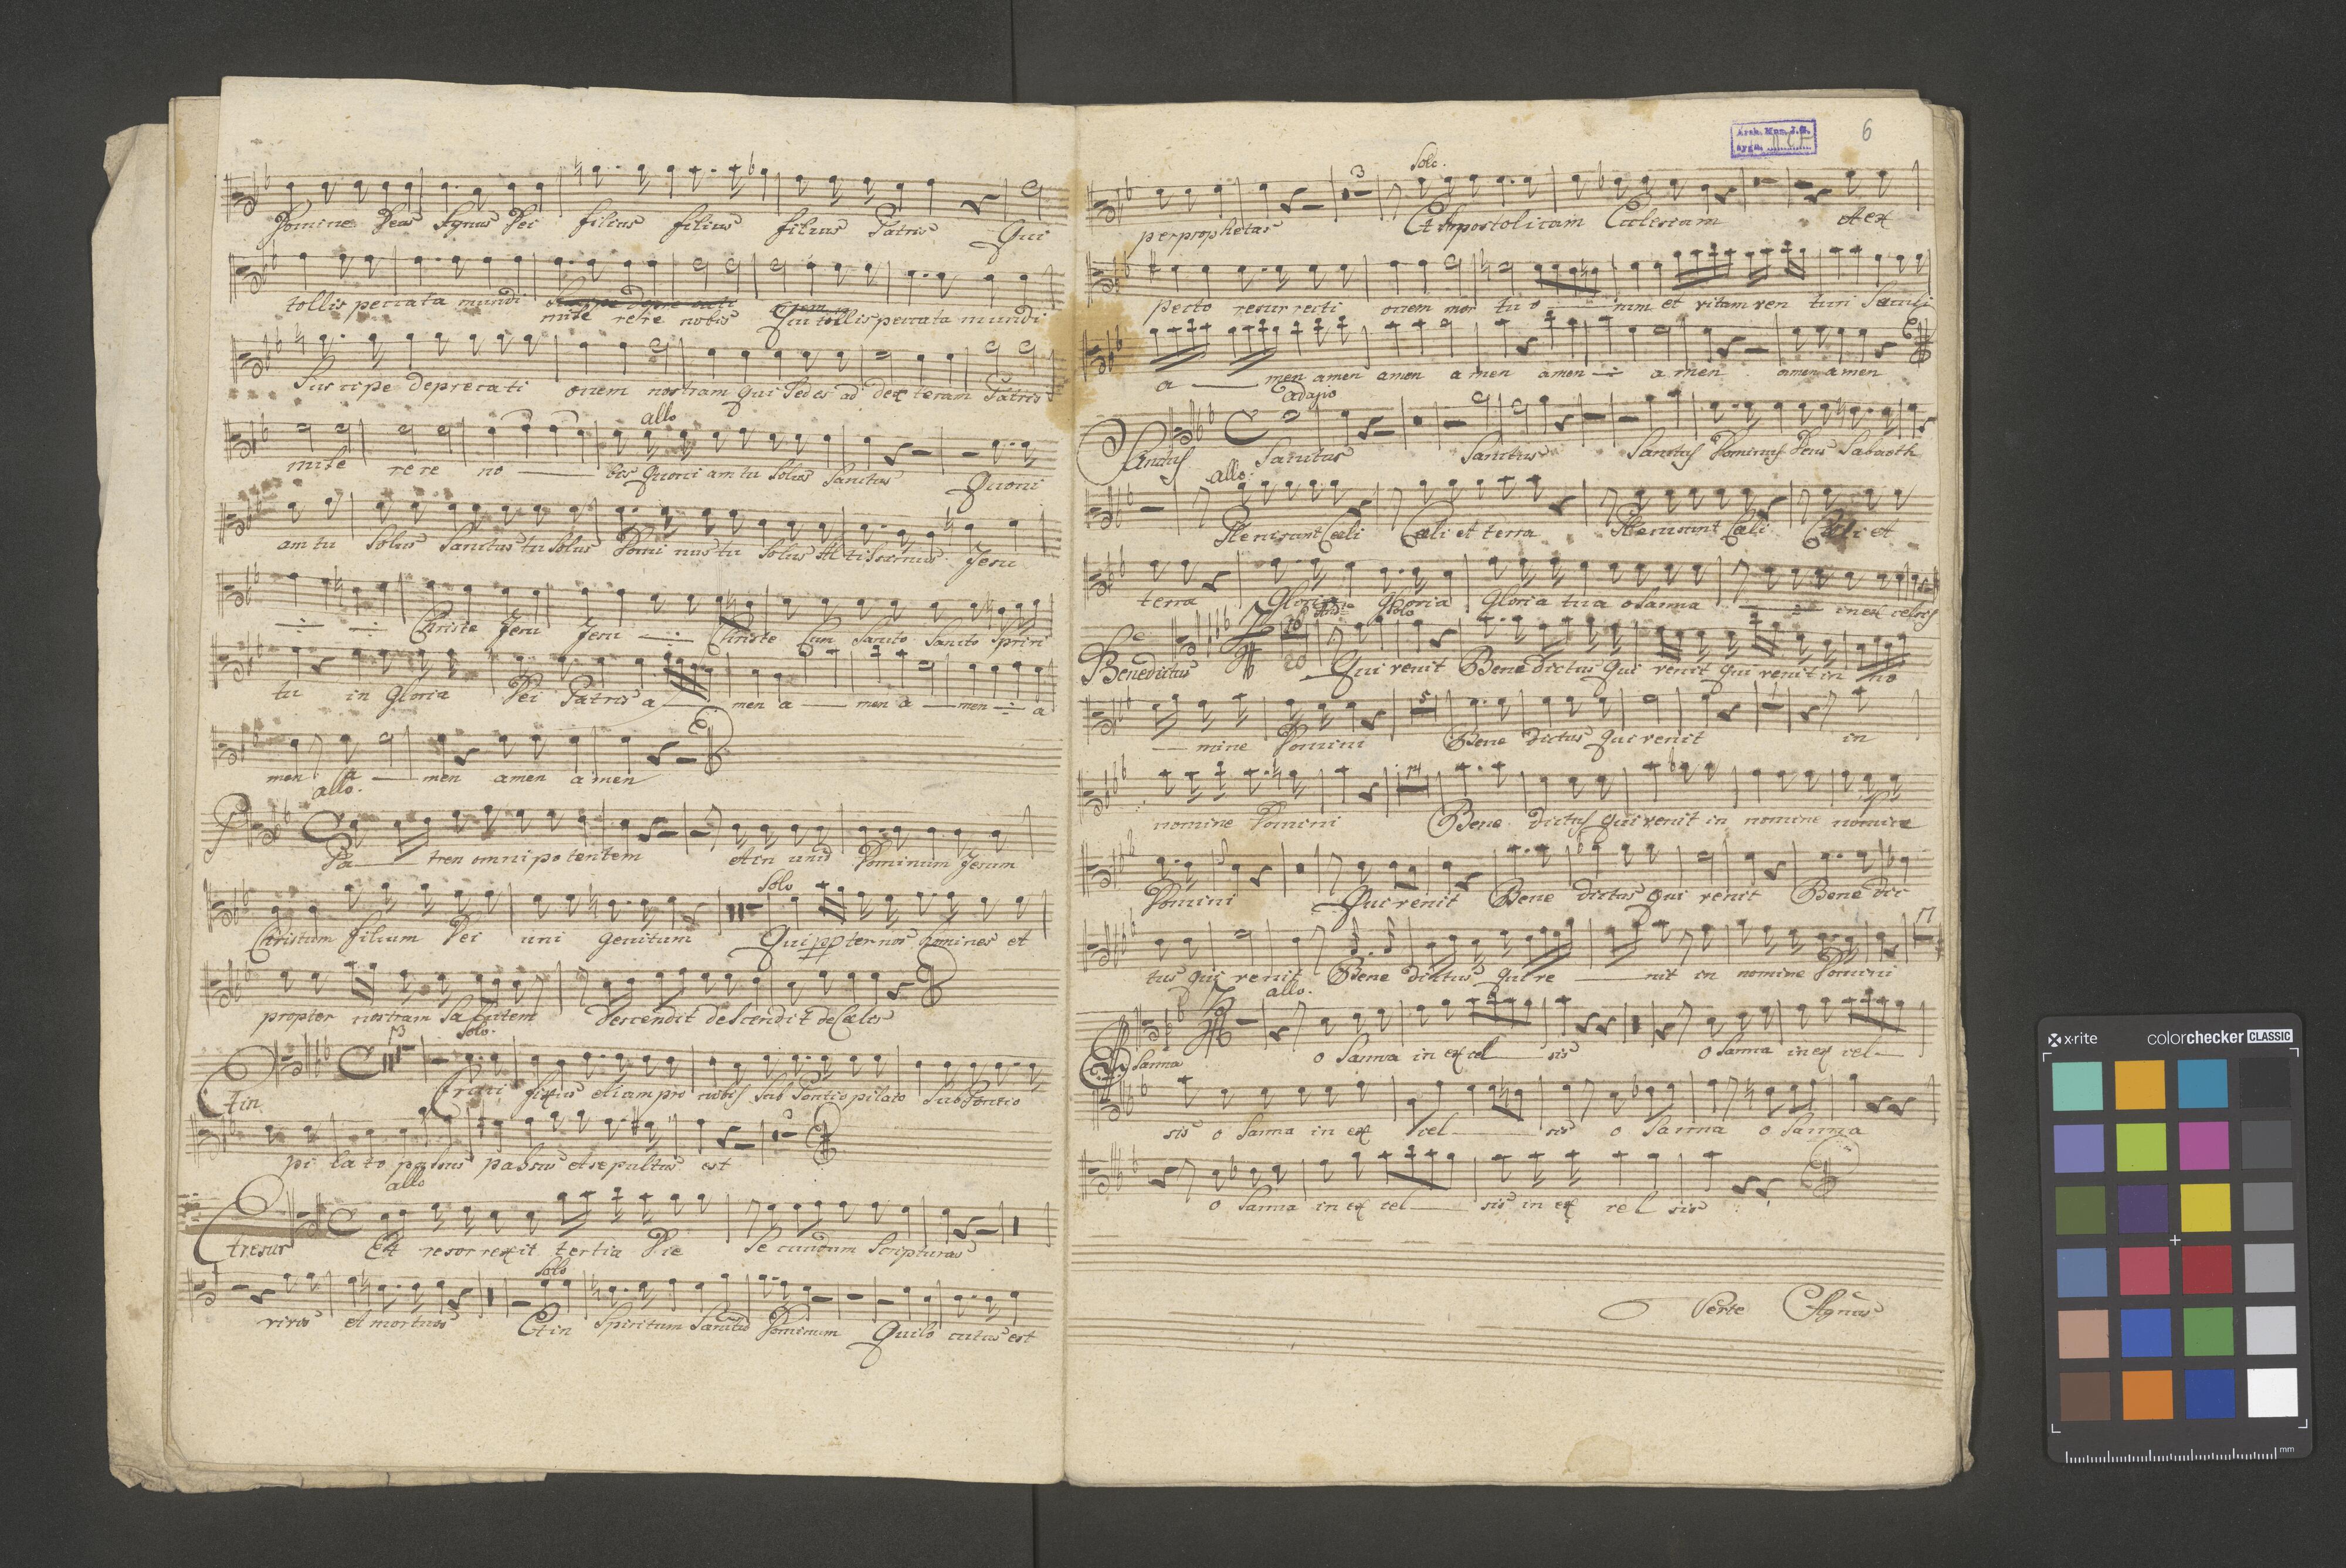 Domine Deus Agnus Dei filius filius filius Patris Qui
tollis peccata mundi
mise rere nobis Qui tollis peccata mundi
Suscipe deprecati onem nostram qui Sedes ad dex teram Patris
allo
mise re re no bis Quoni am tu Solus Sanctus Quoni
am tu Solus Sanctus tu Solus Domi nus tu Solus Al tissimus Jesu
Christe Jesu Jesu Christe Cum Sancto Sancto Spiri
tu in Gloria Dei Patris a men a men a men a
men a men amen amen
allo.
Pa trem omnipotentem et in unū Dominum Jesum
Solo
Christum filium Dei uni genitum Qui ppter nos homines et
propter nostram Salutem descendit descendit de Cælis
13 Solo.
Et in Cruci fixus etiam pro nobis Sub Pontio pilato Sub Pontio
pi la to passus passus et sepultus est
3
allo
Et resur Et resurrexit tertia Die Se cundum Scripturas
Solo
vivos et mortuos Et in Spiritum Sanctū Dominum Qui lo cutus est
Arch. Mon. J.G.
sygn.
6
3 Solo.
per prophetas Et Apostolicam Ecclesiam et ex
pecto resur recti onem mor tu o rum et vitam ven turi Sæculi
a men amen amen amen amen a men amen amen
adagio
Sanctus Sanctus Sanctus Sanctus Dominus Deus Sabaoth
allo.
Pleni sunt Cæli Cæli et terra Pleni sunt Cæli Cæli et
terra Gloria Gloria Gloria tua osanna in ex celsis
Solo
20
Benedictus Qui venit Bene dictus qui venit qui venit in no
5
mine Domini Bene dictus qui venit in
14
nomine Domini Bene dictus qui venit in nomine nomine
Domini Qui venit Bene dictus qui venit Bene dic
17
tus qui venit Bene dictus qui ve nit in nomine Domini
allo.
O Sanna o Sanna in ex cel sis o Sanna in ex cel
sis o Sanna in ex cel sis o Sanna o Sanna
o Sanna in ex cel sis in ex cel sis
Verte Agnus
x-rite colorchecker CLASSIC
mm